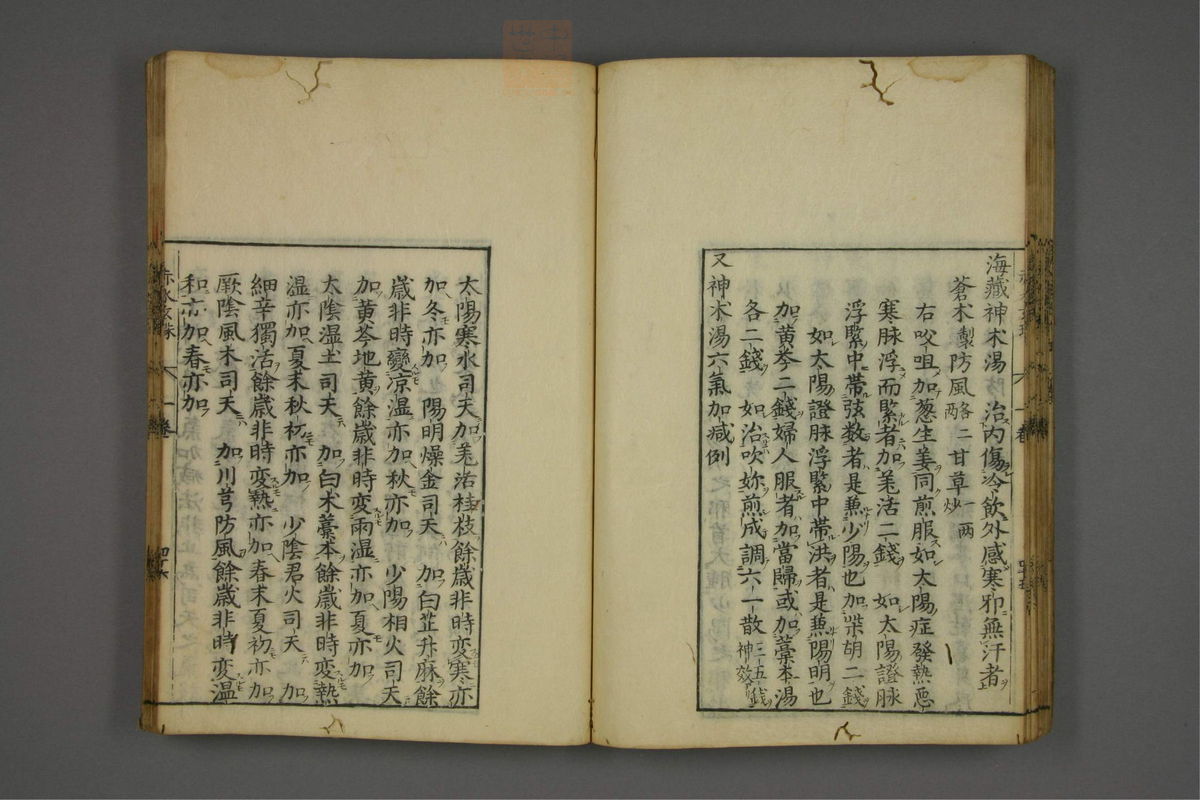 海藏神术湯治内傷冷飲外感寒邪無汗者
蒼术製防風各二両甘草一両炒
右㕮咀加葱生姜同煎服如太陽症發熱惡
寒脉浮而緊者加羌活二錢 如太陽證脉
浮緊中帶弦数者是兼少陽也加柴胡二錢
如太陽證脉浮緊中帶洪者是兼陽明也
加黄芩二錢婦人服者加當歸或加藁本湯
各二錢 如治吹妳煎成調六一散三五錢神效
又神术湯六氣加减例
太陽寒水司天加羌活桂枝餘歳非時变寒亦
加冬亦加 陽明燥金司天 加白芷升麻餘
歳非時變凉湿亦加秋亦加 少陽相火司天
加黄芩地黄餘歳非時变雨湿亦加夏亦加
太陰湿土司天 加白术藁本餘歳非時变熱
湿亦加夏末秋初亦加 少陰君火司天 加
細辛獨活餘歳非時变熱亦加春末夏初亦加
厥陰風木司天 加川芎防風餘歳非時变温
和亦加春亦加
赤水玄珠
一卷